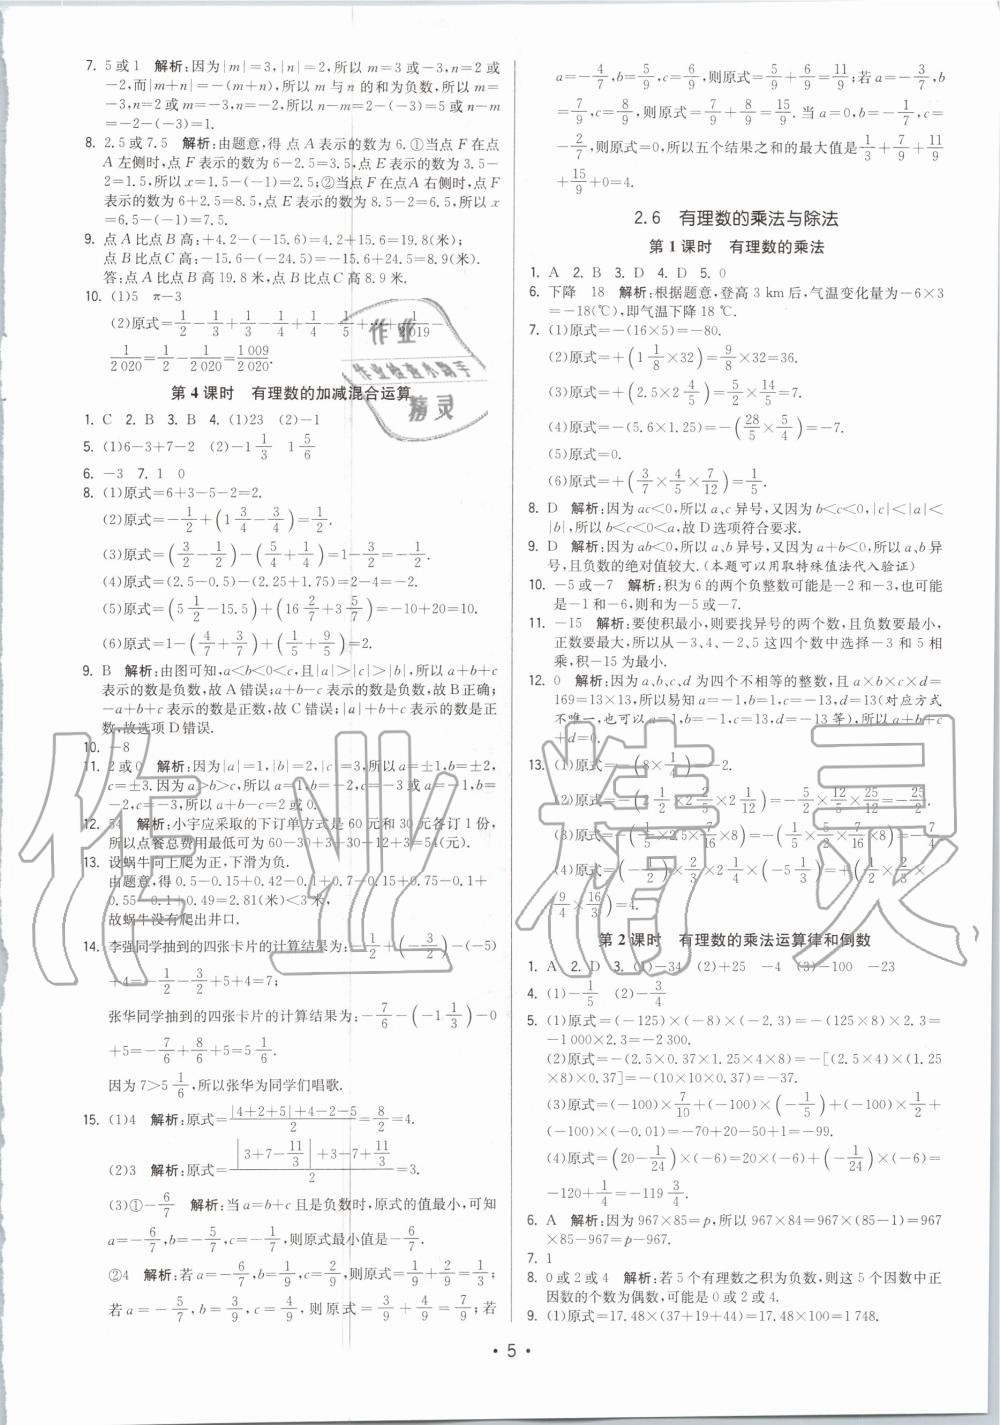 7. 5或1 解析:因为|m|=3,|n|=2,所以m=3或-3,n=2或
-2,而|m+n|=-(m+n),所以m与n的和为负数,所以m=
-3,n=2或m=-3,n=-2,所以n-m=2-(-3)=5或n-m
=-2-(-3)=1.
8. 2.5或7.5 解析:由题意,得点A表示的数为6.①当点F在点
A左侧时,点F表示的数为6-2.5=3.5,点E表示的数为3.5-
2=1.5,所以x=1.5-(-1)=2.5;②当点F在点A右侧时,点F
表示的数为6+2.5=8.5,点E表示的数为8.5-2=6.5,所以x
=6.5-(-1)=7.5.
9. 点A比点B高:+4.2-(-15.6)=4.2+15.6=19.8(米);
点B比点C高:-15.6-(-24.5)=-15.6+24.5=8.9(米).
答:点A比点B高19.8米,点B比点C高8.9米.
10. (1)5 π-3
(2)原式=1/2-1/3+1/3-1/4+1/4-1/5+…+1/2 019-
1/2 020=1/2-1/2 020=1 009/2 020.
第4课时 有理数的加减混合运算
1. C 2. B 3. B 4. (1)23 (2)-1
5. (1)6-3+7-2 (2)-1 1/3 1 5/6
6. -3 7. 1 0
8. (1)原式=6+3-5-2=2.
(2)原式=-1/2+(1 3/4-3/4)=1/2.
(3)原式=(3/2-1/2)-(5/4+1/4)=1-3/2=-1/2.
(4)原式=(2.5-0.5)-(2.25+1.75)=2-4=-2.
(5)原式=(5 1/2-15.5)+(16 2/7+3 5/7)=-10+20=10.
(6)原式=1-(4/7+3/7)+(1/5+9/5)=2.
9. B 解析:由图可知,a<b<0<c,且|a|>|c|>|b|,所以a+b+c
表示的数是负数,故A错误;a+b-c表示的数是负数,故B正确;
-a+b+c表示的数是正数,故C错误;|a|+b+c表示的数是正
数,故选项D错误.
10. -8
11. 2或0 解析:因为|a|=1,|b|=2,|c|=3,所以a=±1,b=±2,
c=±3.因为a>b>c,所以a=1,b=-2,c=-3或a=-1,b=
-2,c=-3,所以a+b-c=2或0.
12. 54 解析:小宇应采取的下订单方式是60元和30元各订1份,
所以点餐总费用最低可为60-30+3+30-12+3=54(元).
13. 设蜗牛向上爬为正,下滑为负.
由题意,得0.5-0.15+0.42-0.1+0.7-0.15+0.75-0.1+
0.55-0.1+0.49=2.81(米)<3米,
故蜗牛没有爬出井口.
14. 李强同学抽到的四张卡片的计算结果为:-1/2+(-3/2)-(-5)
+4=-1/2-3/2+5+4=7;
张华同学抽到的四张卡片的计算结果为:-7/6-(-1 1/3)-0
+5=-7/6+8/6+5=5 1/6.
因为7>5 1/6,所以张华为同学们唱歌.
15. (1)4 解析:原式=(|4+2+5|+4-2-5)/2=8/2=4.
(2)3 解析:原式=(|3+7-11/3|+3-7+11/3)/2=3.
(3)①-6/7 解析:当a=b+c且是负数时,原式的值最小,可知
a=-6/7,b=-5/7,c=-1/7时,则原式最小值是-6/7.
②4 解析:若a=-6/7,b=1/9,c=2/9,则原式=1/9+2/9=1/3;
若a=-5/7,b=3/9,c=4/9,则原式=3/9+4/9=7/9;若
a=-4/7,b=5/9,c=6/9,则原式=5/9+6/9=11/9;若a=-3/7,b
=7/9,c=8/9,则原式=7/9+8/9=15/9.当a=0,b=-1/7,c=
-2/7,则原式=0,所以五个结果之和的最大值是1/3+7/9+11/9
+15/9+0=4.
2.6 有理数的乘法与除法
第1课时 有理数的乘法
1. A 2. B 3. D 4. D 5. 0
6. 下降 18 解析:根据题意,登高3 km后,气温变化量为-6×3
=-18(℃),即气温下降18 ℃.
7. (1)原式=-(16×5)=-80.
(2)原式=+(1 1/8×32)=9/8×32=36.
(3)原式=+(2.5×2 4/5)=5/2×14/5=7.
(4)原式=-(5.6×1.25)=-(28/5×5/4)=-7.
(5)原式=0.
(6)原式=+(3/7×4/5×7/12)=1/5.
8. D 解析:因为ac<0,所以a、c异号,又因为b<c<0,|c|<|a|<
|b|,所以b<c<0<a,故D选项符合要求.
9. D 解析:因为ab<0,所以a、b异号,又因为a+b<0,所以a、b异
号,且负数的绝对值较大.(本题可以用取特殊值法代入验证)
10. -5或-7 解析:积为6的两个负整数可能是-2和-3,也可能
是-1和-6,则和为-5或-7.
11. -15 解析:要使积最小,则要找异号的两个数,且负数要最小,
正数要最大,所以从-3、4、-2、5这四个数中选择-3和5相
乘,积-15为最小.
12. 0 解析:因为a、b、c、d为四个不相等的整数,且a×b×c×d=
169=13×13,所以易知a=-1,b=1,c=-13,d=13(对应方式
不唯一,也可以a=-1,b=1,c=13,d=-13等),所以a+b+c
+d=0.
13. (1)原式=-(8×1/4)=-2.
(2)原式=-(2 1/2×2 2/5×2 1/12)=-5/2×12/5×25/12=-25/2.
(3)原式=-(1/5×2.5×7/16×8)=-(1/5×5/2×7/16×8)=-7/4
(4)原式=+
9/4×16/3)=4.
第2课时 有理数的乘法运算律和倒数
1. A 2. D 3. (1)-34 (2)+25 -4 (3)-100 -23
4. (1)-1/5 (2)-3/4
5. (1)原式=(-125)×(-8)×(-2.3)=-(125×8)×2.3=
-1 000×2.3=-2 300.
(2)原式=-(2.5×0.37×1.25×4×8)=-[(2.5×4)×(1.25
×8)×0.37]=-(10×10×0.37)=-37.
(3)原式=(-100)×7/10+(-100)×(-1/5)+(-100)×1/2+
(-100)×(-0.01)=-70+20-50+1=-99.
(4)原式=(20-1/24)×(-6)=20×(-6)+(-1/24)×(-6)=
-120+1/4=-119 3/4.
6. A 解析:因为967×85=p,所以967×84=967×(85-1)=967
×85-967=p-967.
7. 1
8. 0或2或4 解析:若5个有理数之积为负数,则这5个因数中正
因数的个数为偶数,可能是0或2或4.
9. (1)原式=17.48×(37+19+44)=17.48×100=1 748.
• 5 •
作业
作业检查小助手
精灵
作业精灵